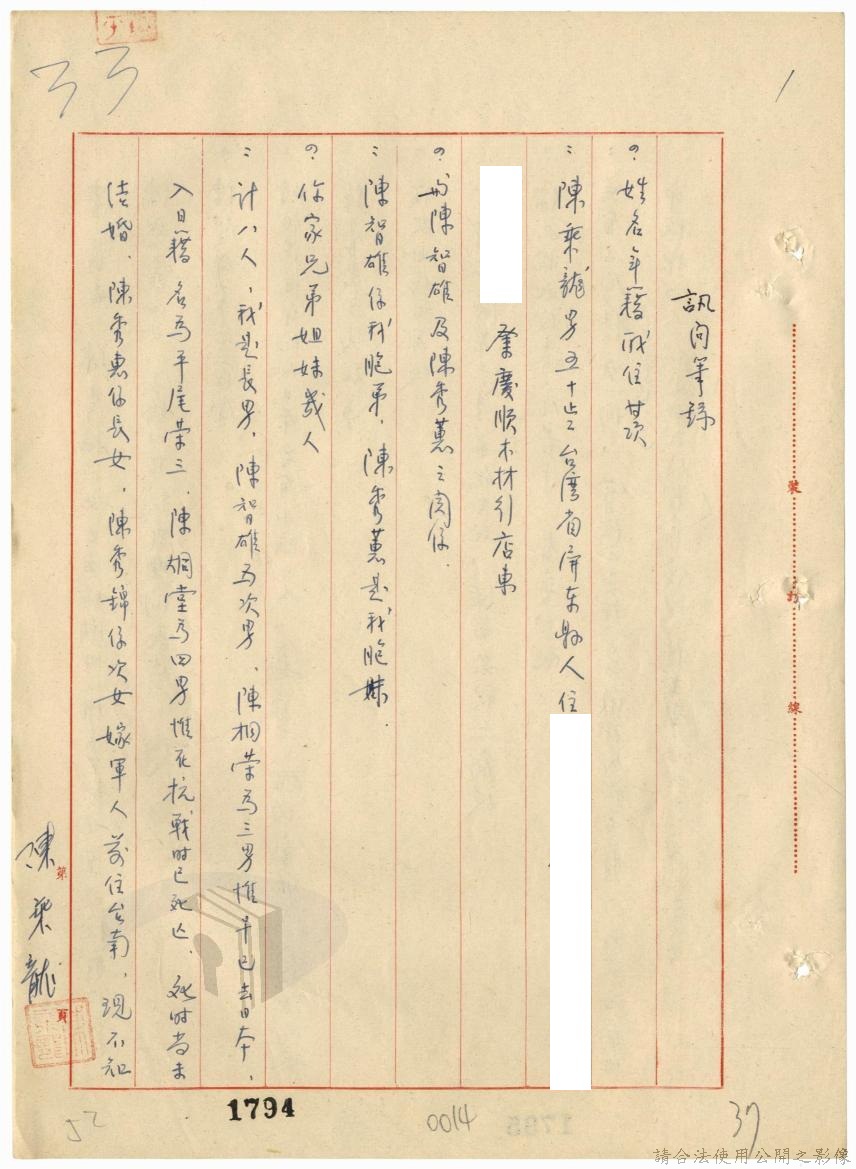 訊問筆錄
問：姓名年籍職住等項
答：陳乘龍男五十二台灣省屏東縣人住
肇慶順木材行店東
問：与陳智雄及陳秀蕙之関係．
答：陳智雄係我胞弟，陳秀蕙是我胞妹．
問：你家兄弟姐妹幾人
答：計八人，我是長男，陳智雄為次男，陳相榮為三男惟早已去日本，
入日籍名為平尾榮三．陳炯堂為四男惟在抗戰時已死亡、死時尚未
结婚．陳秀惠係長女，陳秀錦係次女嫁軍人前住台南，現不知
陳乘龍
第 頁
裝 訂 線
1
37
52
1794
0014
請合法使用公開之影像